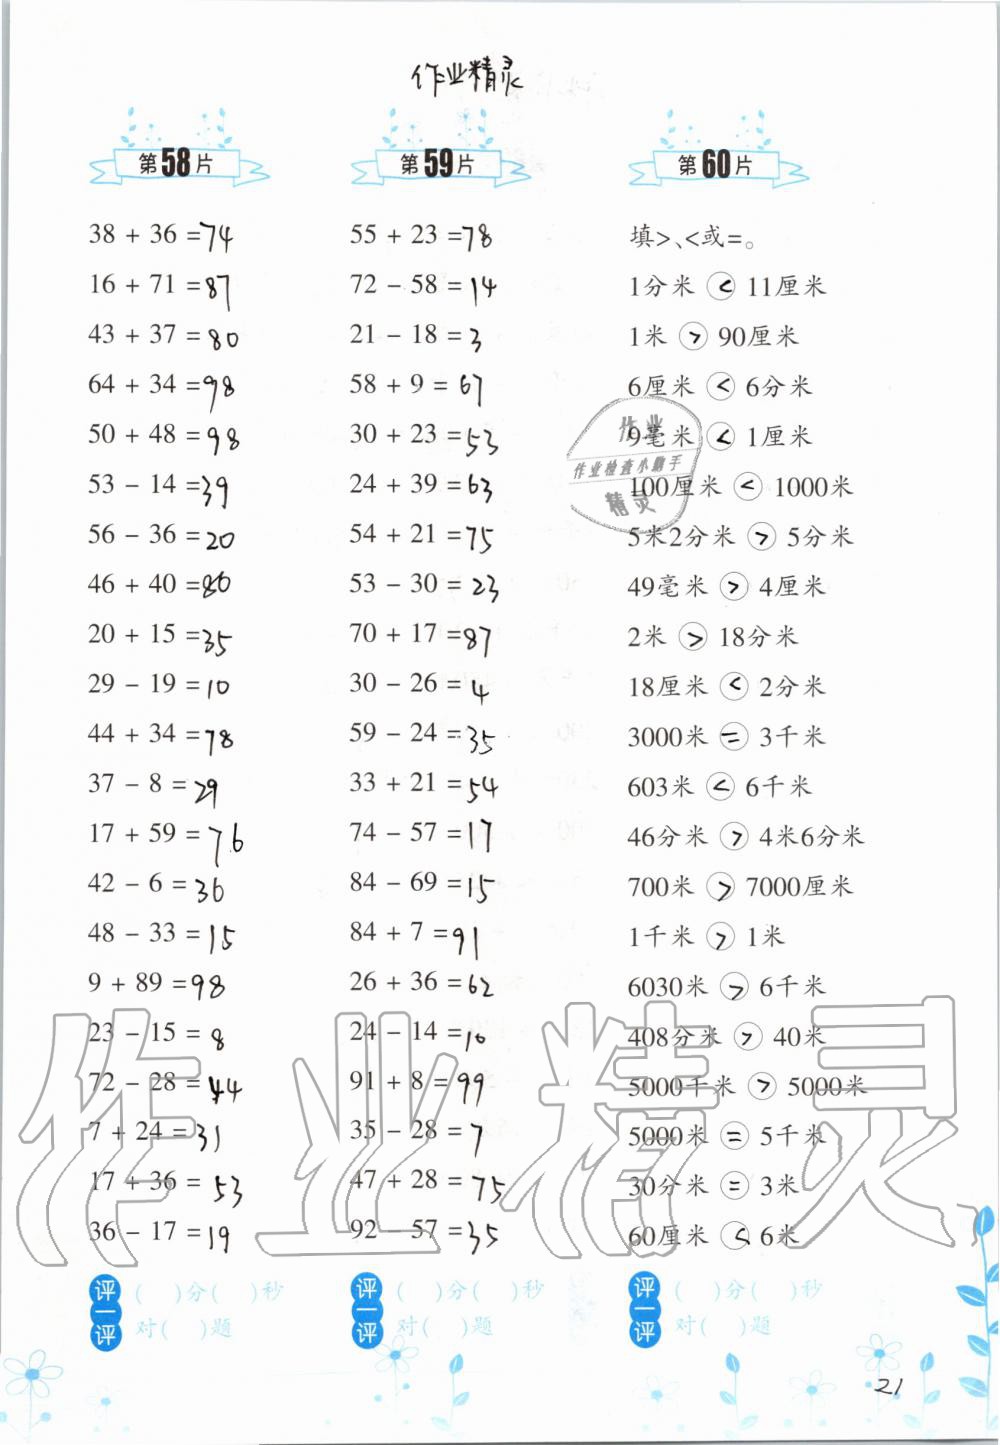 作业精灵
第58片
38 + 36 =74
16 + 71 =87
43 + 37 =80
64 + 34 =98
50 + 48 =98
53 - 14 =39
56 - 36 =20
46 + 40 =86
20 + 15 =35
29 - 19 =10
44 + 34 =78
37 - 8 =29
17 + 59 =76
42 - 6 =36
48 - 33 =15
9 + 89 =98
23 - 15 =8
72 - 28 =44
7 + 24 =31
17 + 36 =53
36 - 17 =19
评一评
( )分( )秒
对( )题
第59片
55 + 23 =78
72 - 58 =14
21 - 18 =3
58 + 9 =67
30 + 23 =53
24 + 39 =63
54 + 21 =75
53 - 30 =23
70 + 17 =87
30 - 26 =4
59 - 24 =35
33 + 21 =54
74 - 57 =17
84 - 69 =15
84 + 7 =91
26 + 36 =62
24 - 14 =10
91 + 8 =99
35 - 28 =7
47 + 28 =75
92 - 57 =35
评一评
( )分( )秒
对( )题
第60片
填>、<或=。
1分米 < 11厘米
1米 > 90厘米
6厘米 < 6分米
9毫米 < 1厘米
100厘米 < 1000米
5米2分米 > 5分米
49毫米 > 4厘米
2米 > 18分米
18厘米 < 2分米
3000米 = 3千米
603米 < 6千米
46分米 > 4米6分米
700米 > 7000厘米
1千米 > 1米
6030米 > 6千米
408分米 > 40米
5000千米 > 5000米
5000米 = 5千米
30分米 = 3米
60厘米 < 6米
评一评
( )分( )秒
对( )题
作业
作业检查小助手
精灵
作业精灵
21